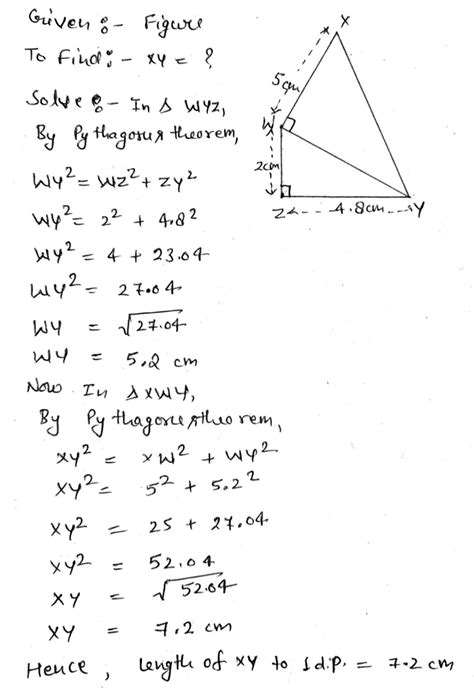 Given :- Figure
To Find :- XY = ?
Solve :- In Δ WYZ,
By Pythagorus theorem,
WY² = WZ² + ZY²
WY² = 2² + 4.8²
WY² = 4 + 23.04
WY² = 27.04
WY = √27.04
WY = 5.2 cm
Now In Δ XWY,
By Pythagorus theorem,
XY² = XW² + WY²
XY² = 5² + 5.2²
XY² = 25 + 27.04
XY² = 52.04
XY = √52.04
XY = 7.2 cm
Hence, length of XY to 1 d.p. = 7.2 cm
X
5cm
W
2cm
Z
4.8cm
Y